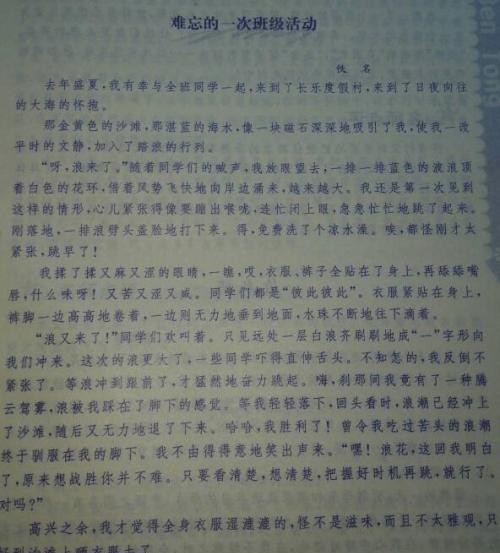 难忘的一次班级活动
佚 名
去年盛夏,我有幸与全班同学一起,来到了长乐度假村,来到了日夜向往
的大海的怀抱。
那金黄色的沙滩,那湛蓝的海水,像一块磁石深深地吸引了我,使我一改
平时的文静,加入了踏浪的行列。
“呀,浪来了。”随着同学们的喊声,我放眼望去,一排一排蓝色的波浪顶
着白色的花环,借着风势飞快地向岸边涌来,越来越大。我还是第一次见到
这样的情形,心儿紧张得像要蹦出喉咙,连忙闭上眼,急急忙忙地跳了起来。
刚落地,一排浪劈头盖脸地打下来。得,免费洗了个凉水澡。唉,都怪刚才太
紧张,跳早了!
我揉了揉又麻又涩的眼睛,一瞧,哎,衣服、裤子全贴在了身上,再舔舔嘴
唇,什么味呀!又苦又涩又咸。同学们都是“彼此彼此”。衣服紧贴在身上,
裤脚一边高高地卷着,一边则无力地垂到地面,水珠不断地往下滴着。
“浪又来了!”同学们欢叫着。只见远处一层白浪齐刷刷地成“一”字形向
我们冲来。这次的浪更大了,一些同学吓得直伸舌头。不知怎的,我反倒不
紧张了。等浪冲到跟前了,才猛然地奋力跳起。嗨,刹那间我竟有了一种腾
云驾雾,浪被我踩在了脚下的感觉。等我轻轻落下,回头看时,浪潮已经冲上
了沙滩,随后又无力地退了下来。哈哈,我胜利了!曾令我吃过苦头的浪潮
终于驯服在我的脚下。我不由得得意地笑出声来。“嘿!浪花,这回我明白
了,原来想战胜你并不难。只要看清楚,想清楚,把握好时机再跳,就行了。
对吗?”
高兴之余,我才觉得全身衣服湿漉漉的,怪不是滋味,而且不太雅观,只